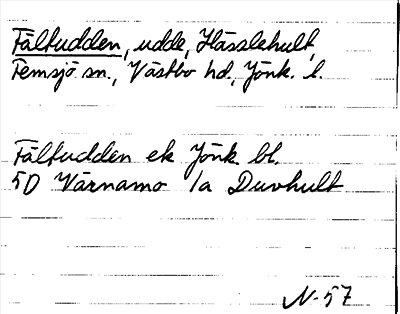 Fältudden, udde, Hässlehult,
Femsjö sn., Västbo hd., Jönk. l.
Fältudden ek Jönk. bl.
5D Värnamo 1a Duvhult
N-57